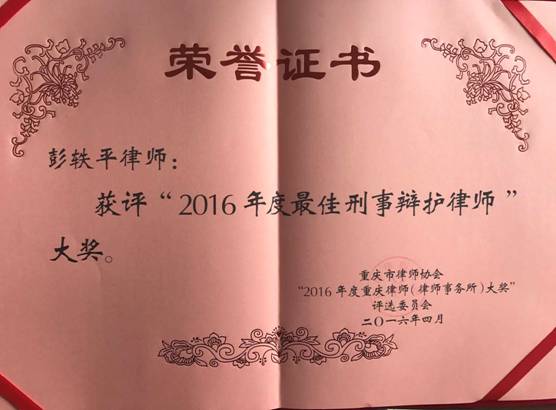 荣誉证书
彭轶平律师：
获评“2016年度最佳刑事辩护律师”
大奖。
重庆市律师协会
“2016年度重庆律师（律师事务所）大奖”
评选委员会
二〇一六年四月